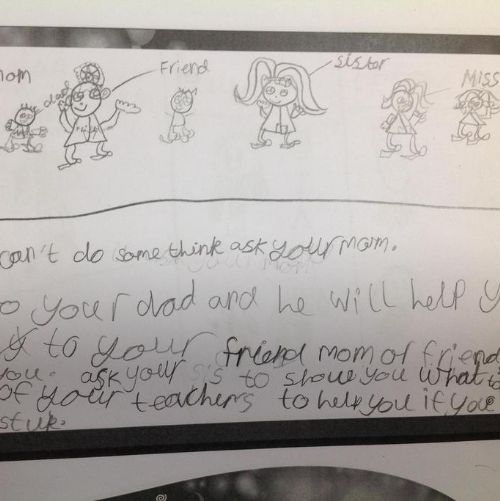 mom
dad
Friend
sister
MISS
can't do some think ask your mom.
o your dad and he will help y
to your friend mom or friend
you. ask your sis to show you what
of your teachers to help you if you
stuk.